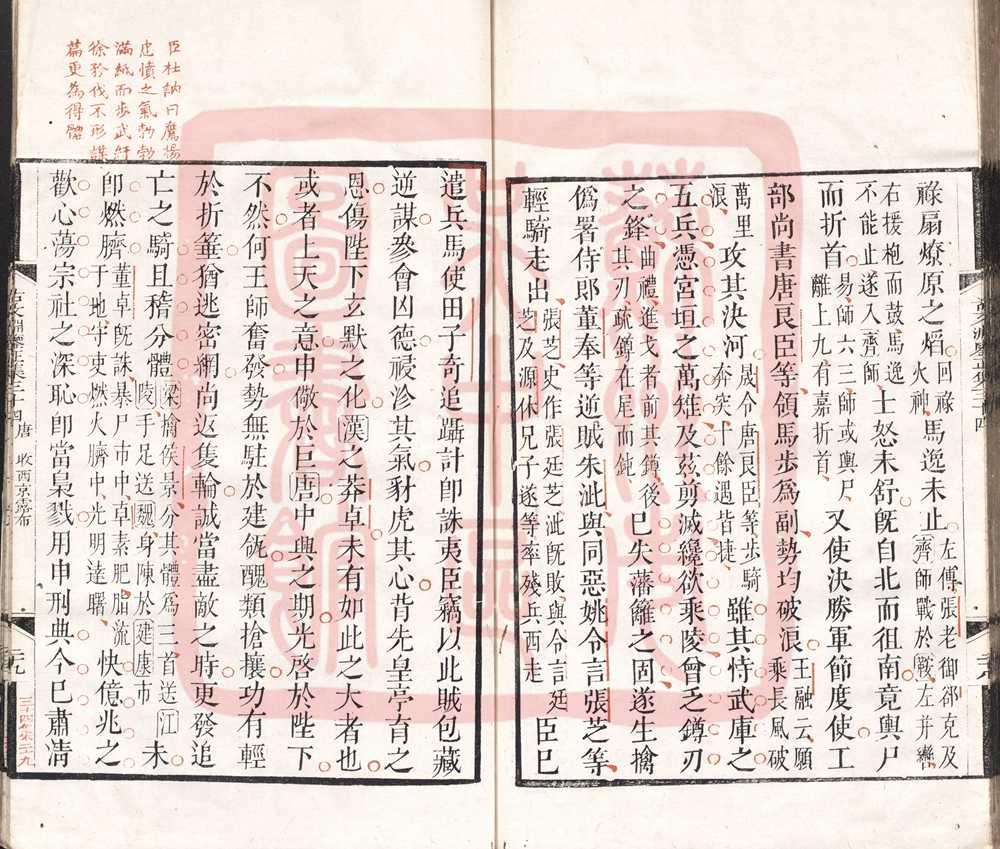 祿扇燎原之熖回祿火神馬逸未止左傅張老御郤克及齊師戰於戰左并轡
右援枹而鼓馬逸不能止遂入齊師士怒未舒旣自北而徂南竟輿尸
而折首易師六三師或輿尸離上九有嘉折首又使決勝軍節度使工
部尚書唐良臣等領馬步爲副勢均破浪王融云願乘長風破
萬里浪攻其決河晟令唐良臣等步騎奔突十餘遇皆捷雖其恃武庫之
五兵憑宮垣之萬雉及茲剪滅纔欲乘陵曾乏鐏刃
之鋒曲禮進戈者前其鐏後其刃疏鐏在尾而鈍巳失藩籬之固遂生擒
僞署侍郎董奉等逆賊朱泚與同惡姚令言張芝等
輕騎走出張芝史作張廷芝泚旣敗與令言廷芝及源休兄子遂等率殘兵西走臣巳
遣兵馬使田子奇追躡計卽誅夷臣竊以此賊包藏
逆謀參會凶德祲沴其氣豺虎其心背先皇亭育之
恩傷陛下玄默之化漢之莽卓未有如此之大者也
或者上天之意申儆於巨唐中興之期光啓於陛下
不然何王師奮發勢無駐於建瓴醜類搶攘功有輕
於折箠猶逃密網尚返隻輪誠當盡敵之時更發追
亡之騎且稽分體梁擒侯景分其體爲三首送江陵手足送魏身陳於建康市未
卽燃臍董卓旣誅暴尸市中卓素肥脂流于地守吏燃火臍中光明達曙快億兆之
歡心蕩宗社之深恥卽當梟戮用申刑典今巳肅清
臣杜訥曰鷹揚
忠憤之氣勃勃
滿紙而步武紆
徐矜伐不形謀
篇更為得體
唐 收西京露布